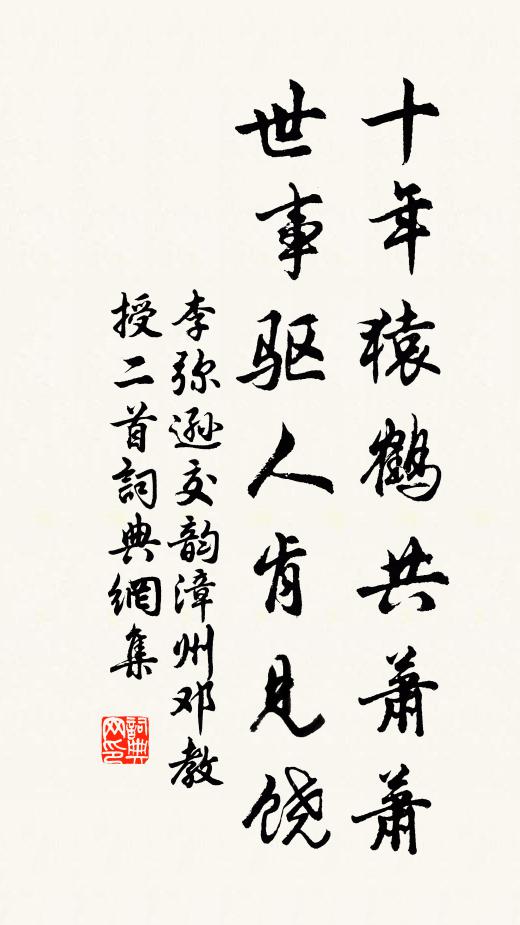 十年猿鹤共萧萧
世事驱人肯见饶
李弥逊交韵漳州邓教
授二首詞典網集
詞典
网印